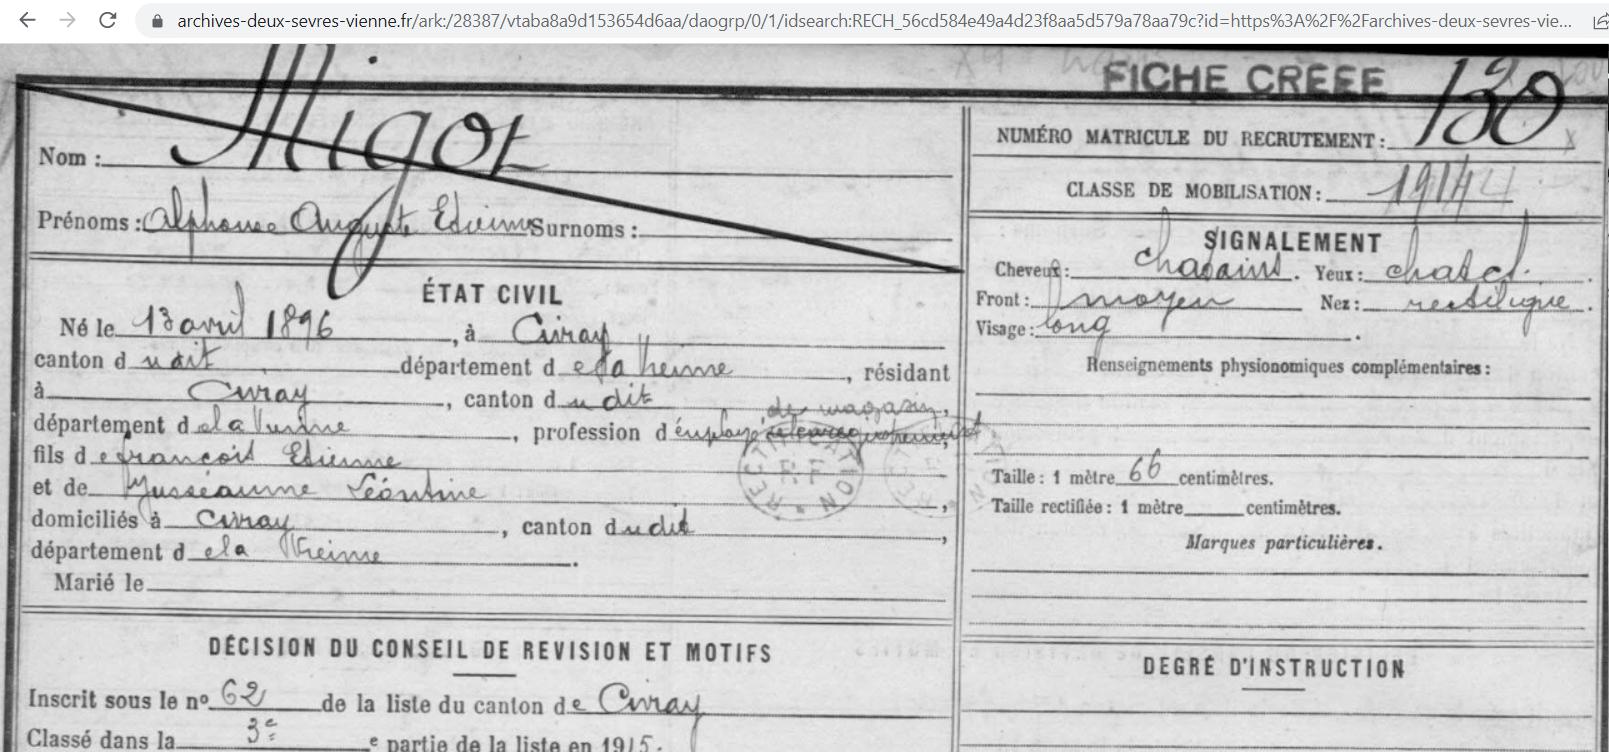 archives-deux-sevres-vienne.fr/ark:/28387/vtaba8a9d153654d6aa/daogrp/0/1/idsearch:RECH_56cd584e49a4d23f8aa5d579a78aa79c?id=https%3A%2F%2Farchives-deux-sevres-vie...
FICHE CRÉÉE
Nom : Migot
Prénoms : Alphonse Auguste Etienne Surnoms :
ÉTAT CIVIL
Né le 13 avril 1896, à Civray
canton dudit département de la Vienne, résidant
à Civray, canton dudit
département de la Vienne, profession d'employé de magasin,
fils de François Etienne
et de Jusséaume Léontine,
domiciliés à Civray, canton dudit,
département de la Vienne.
Marié le
DÉCISION DU CONSEIL DE REVISION ET MOTIFS
Inscrit sous le nº 62 de la liste du canton de Civray
Classé dans la 3e e partie de la liste en 1915.
NUMÉRO MATRICULE DU RECRUTEMENT : 130
CLASSE DE MOBILISATION :
SIGNALEMENT
Cheveux : chatains. Yeux : chatcl.
Front : moyen Nez : rectiligne.
Visage : long.
Renseignements physionomiques complémentaires :
Taille : 1 mètre 66 centimètres.
Taille rectifiée : 1 mètre centimètres.
Marques particulières.
DEGRÉ D'INSTRUCTION
RECTIFICATION R.F.